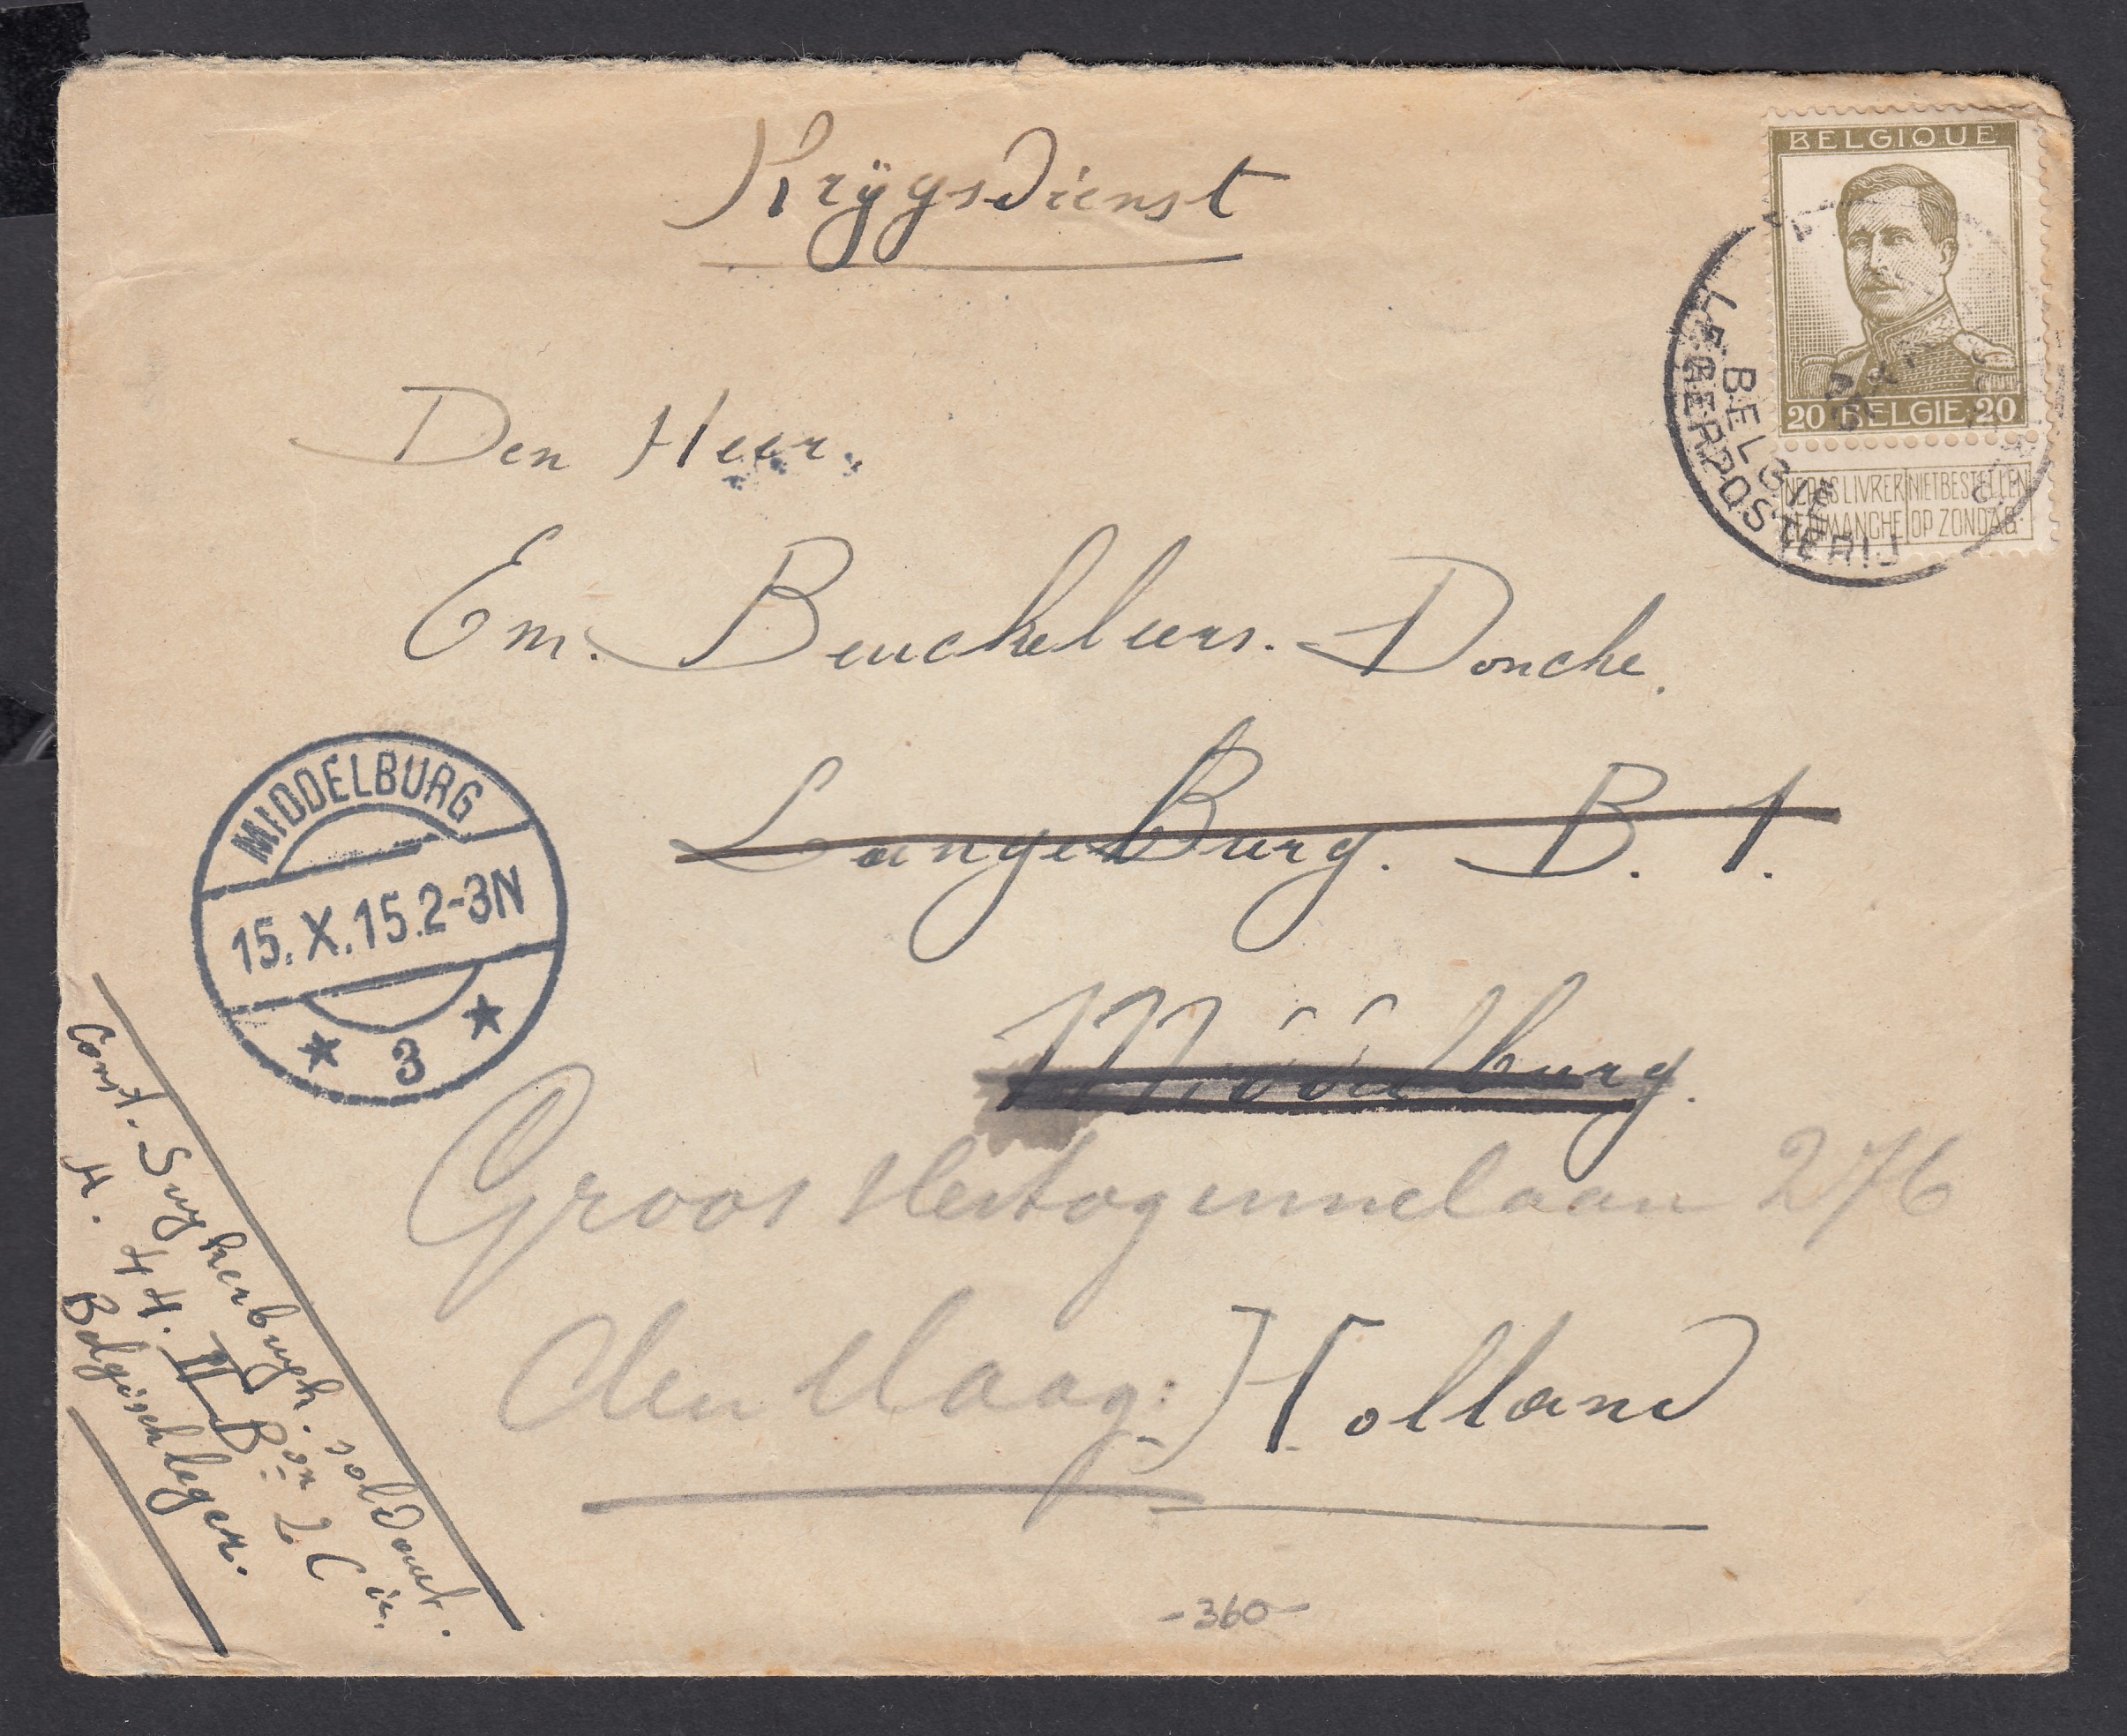 Krÿgsdienst
BELGIQUE
20 BELGIE 20
NE PAS LIVRER NIET BESTELLEN
LE DIMANCHE OP ZONDAG
BELGIE
LEGERPOSTERIJ
Den Heer.
Em. Beuckeleers. Donche.
LangeBurg. B. 1.
Middelburg.
MIDDELBURG
15.X.15.2-3N
3
Groot Hertoginnelaan 276
den Haag: Holland
Const. Suykerbuyk. soldaat.
H. 44. II Bon 2 Cie.
Belgisch leger.
-360-